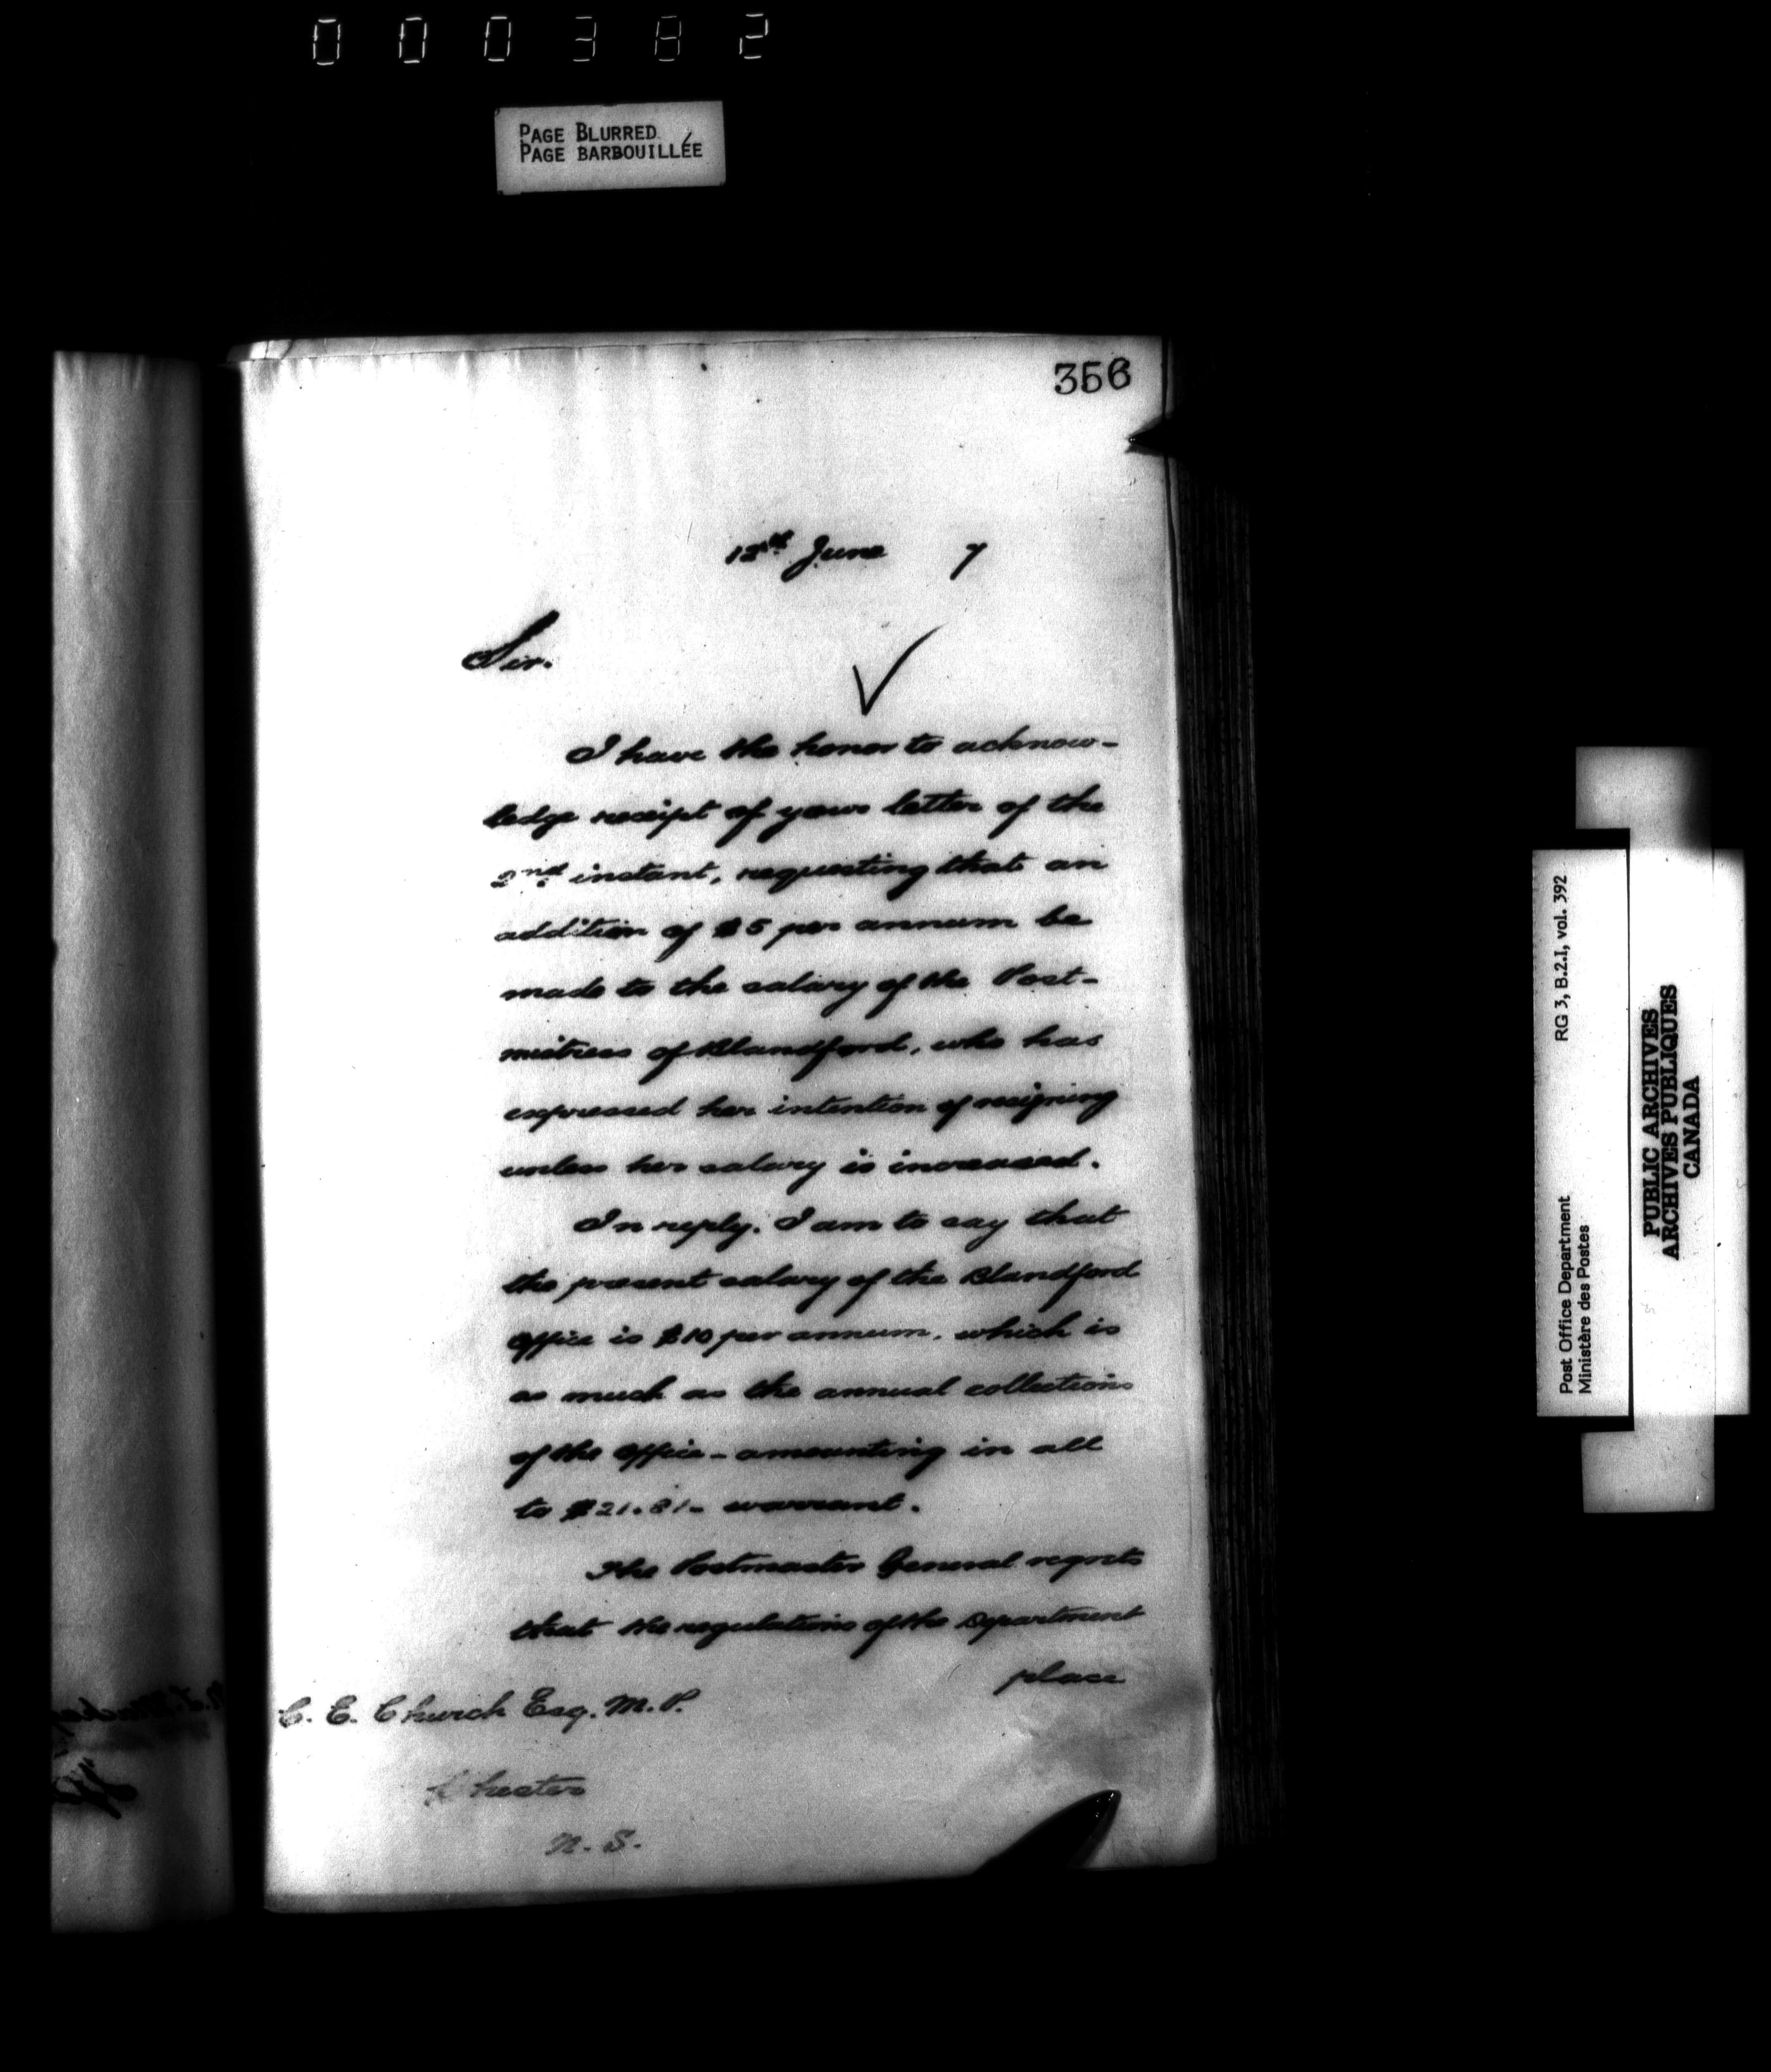 000382
PAGE BLURRED
PAGE BARBOUILLÉE
356
12th June 7
Sir.
I have the honor to acknow-
ledge receipt of your letter of the
2nd instant, requesting that an
addition of $5 per annum be
made to the salary of the Post-
mistress of Blandford, who has
expressed her intention of resigning
unless her salary is increased.
In reply. I am to say that
the present salary of the Blandford
Office is $10 per annum, which is
as much as the annual collections
of the Office - amounting in all
to $21.81 - warrant.
The Postmaster General regrets
that the regulations of the Department
place
C. E. Church Esq. M.P.
Chester
N. S.
Post Office Department RG 3, B.2.I, vol. 392
Ministère des Postes
PUBLIC ARCHIVES
ARCHIVES PUBLIQUES
CANADA